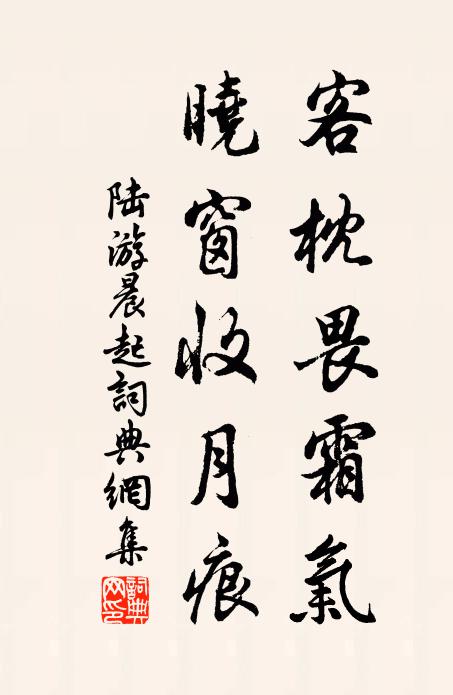 客枕畏霜氣
曉窗收月痕
陸游晨起詞典網集
詞典网印